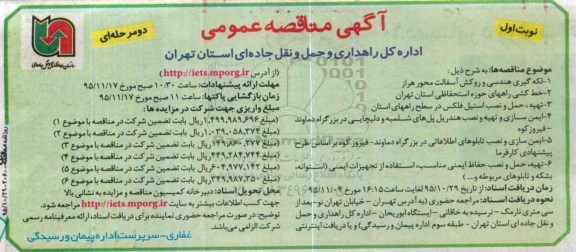 نوبت اول
آگهی مناقصه عمومی
دو مرحله‌ای
اداره کل راهداری و حمل و نقل جاده‌ای استان تهران
موضوع مناقصه‌ها: به شرح ذیل:
۱-لکه گیری هندسی و روکش آسفالت محور هراز
۲-خط کشی راههای حوزه استحفاظی استان تهران
۳-تهیه، حمل و نصب استیل فلکس در سطح راههای استان
۴-ایمن سازی و تهیه و نصب هندریل پل‌های شلمبه و دلیچایی در بزرگراه دماوند
- فیروزکوه
۵-ایمن سازی و نصب تابلوهای اطلاعاتی در بزرگراه دماوند- فیروزکوه بر اساس طرح
پیشنهادی کارفرما
۶-تهیه، حمل و نصب حفاظ ایمنی مناسب، استفاده از تجهیزات ایمنی (استوانه،
بشکه و تابلوهای مربوطه و...)
زمان دریافت اسناد: از تاریخ ۹۵/۱۰/۲۹ لغایت ساعت ۱۶:۱۵ مورخ ۹۵/۱۱/۰۹
نحوه دریافت اسناد: مراجعه حضوری (به آدرس تهـران - خیابان تهران نو- بعد از
سی متری نارمک - نرسیده به خاقانی - ایستگاه ابوریحان - اداره کل راهداری و حمل
و نقل جاده ای استان تهران - طبقه سوم اداره پیمان و رسیدگی) و یا دریافت اینترنتی
(از آدرس http://iets.mporg.ir)
مهلت ارائه پیشنهادات: ساعت ۱۰:۳۰ صبح مورخ ۹۵/۱۱/۱۷
زمان بازگشایی پاکتها: ساعت ۱۱ صبح مورخ ۹۵/۱۱/۱۷
مبلغ واریزی جهت شرکت در مزایده ها:
(مبلغ ۱،۴۹۹،۹۸۹،۶۹۶ ریال بابت تضمین شرکت در مناقصه با موضوع ۱)
(مبلغ ۱،۰۳۹،۰۵۸،۳۷۴ ریال بابت تضمین شرکت در مناقصه با موضوع ۲)
(مبلغ ۱۴۹،۸۶۰،۳۷۷ ریال بابت تضمین شرکت در مناقصه با موضوع ۳)
(مبلغ ۴۴۹،۲۸۴،۷۴۴ ریال بابت تضمین شرکت در مناقصه با موضوع ۴)
(مبلغ ۶۰۴،۹۷۷،۱۴۲ ریال بابت تضمین شرکت در مناقصه با موضوع ۵)
(مبلغ ۳۴۹،۹۸۷،۳۵۰ ریال بابت تضمین شرکت در مناقصه با موضوع ۶)
محل تحویل اسناد: دبیرخانه کمیسیون مناقصه و مزایده به نشانی بالا
جهت کسب اطلاعات بیشتر به سایت http://iets.mporg.ir مراجعه شود.
توضیح: در صورت مراجعه حضوری نماینده برای دریافت اسناد، ارائه معرفینامه رسمی
شرکت الزامی می‌باشد.
غفاری- سرپرست اداره پیمان و رسیدگی